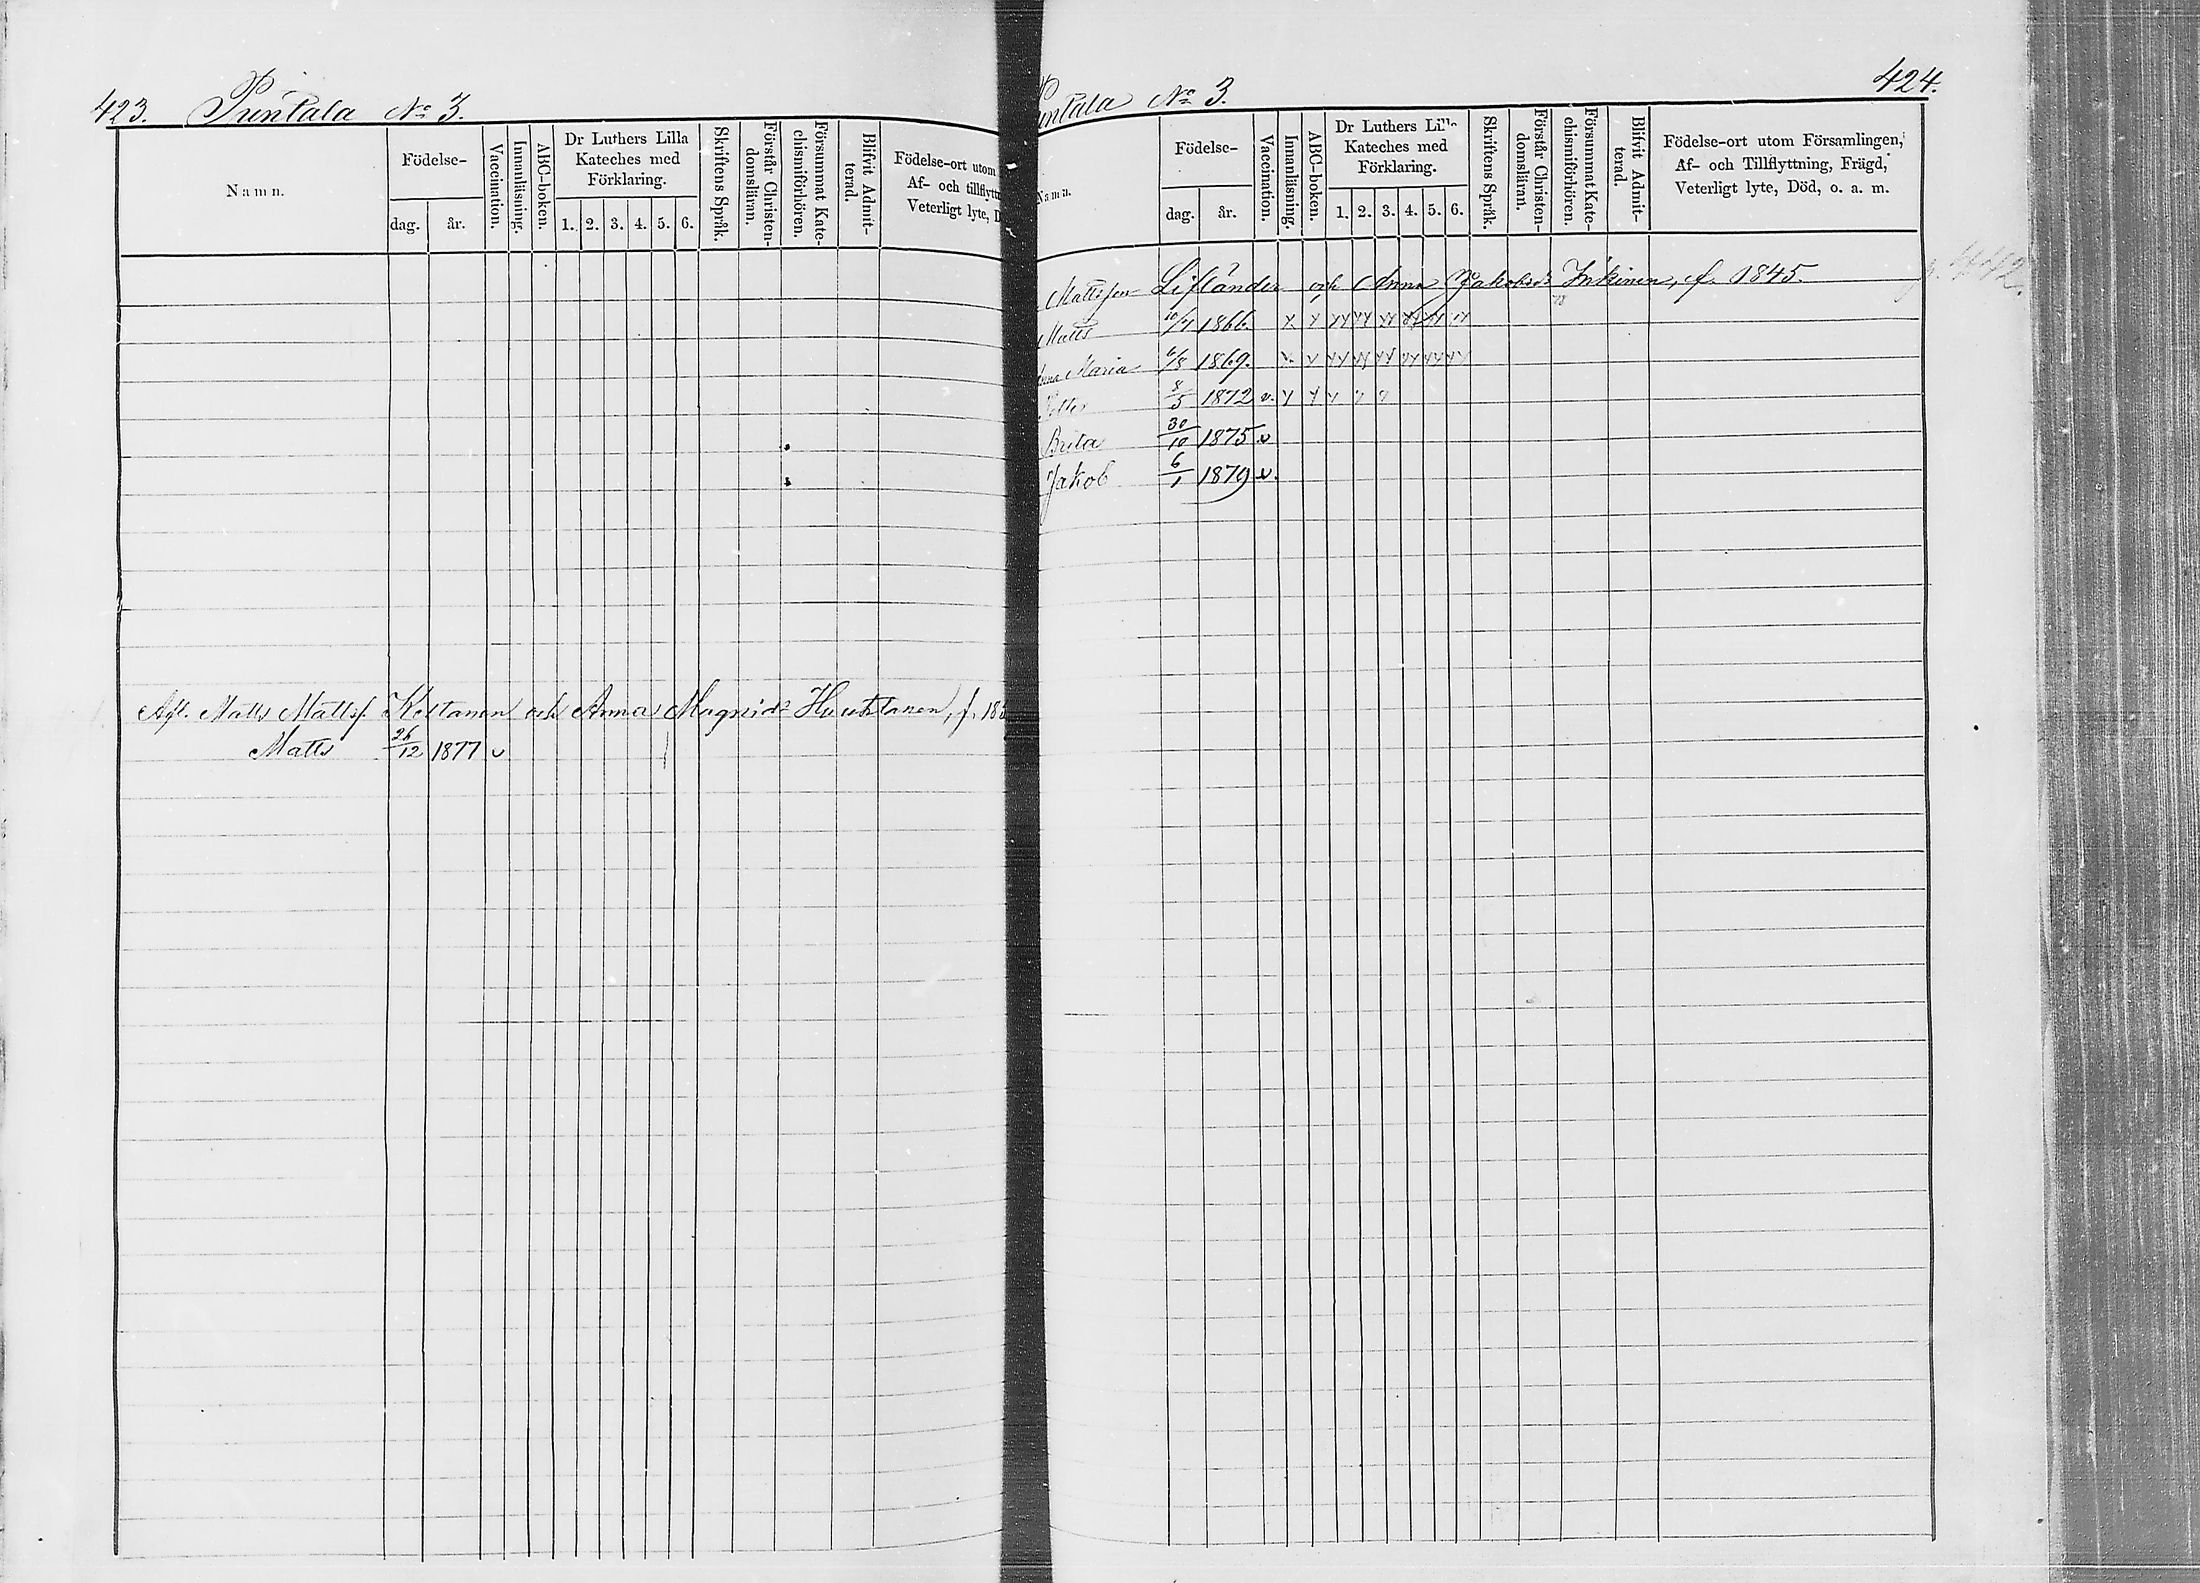 423. Puntala No 3.
Namn.
Födelse-
dag. år.
Vaccination.
Innanläsning.
ABC-boken.
Dr Luthers Lilla
Kateches med
Förklaring.
1. 2. 3. 4. 5. 6.
Skriftens Språk.
Förstår Christen-
domsläran.
Försummat Kate-
chismiförhören.
Blifvit Admit-
terad.
Födelse-ort utom
Af- och tillflytt
Veterligt lyte, D
Afl. Matts Mattsf. Kestanen och Anna Magnid:r f. 18
Matts 26/12 1877 v
untala No 3. 424.
Namn.
Födelse-
dag. år.
Vaccination.
Innanläsning.
ABC-boken.
Dr Luthers Lilla
Kateches med
Förklaring.
1. 2. 3. 4. 5. 6.
Skriftens Språk.
Förstår Christen-
domsläran.
Försummat Kate-
chismiförhören.
Blifvit Admit-
terad.
Födelse-ort utom Församlingen,
Af- och Tillflyttning, Frägd,
Veterligt lyte, Död, o. a. m.
Mattsson Lifländer och Anna Jakobsd:r Inkinen, f. 1845.
Matts 10/4 1866.
nna Maria 6/8 1869.
Petter 8/5 1872 v.
Brita 30/10 1875 v
Jakob 6/1 1879 v.